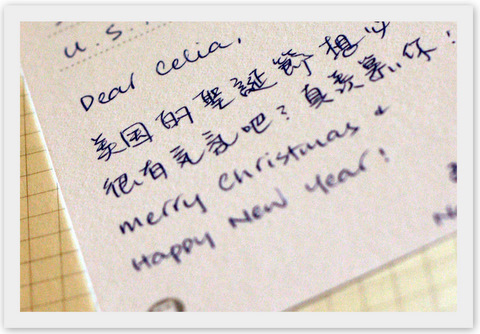 U.S.
Dear Celia,
美国的聖誕節想必
很有氣氛吧？真羨慕你！
merry christmas &
Happy New Year!